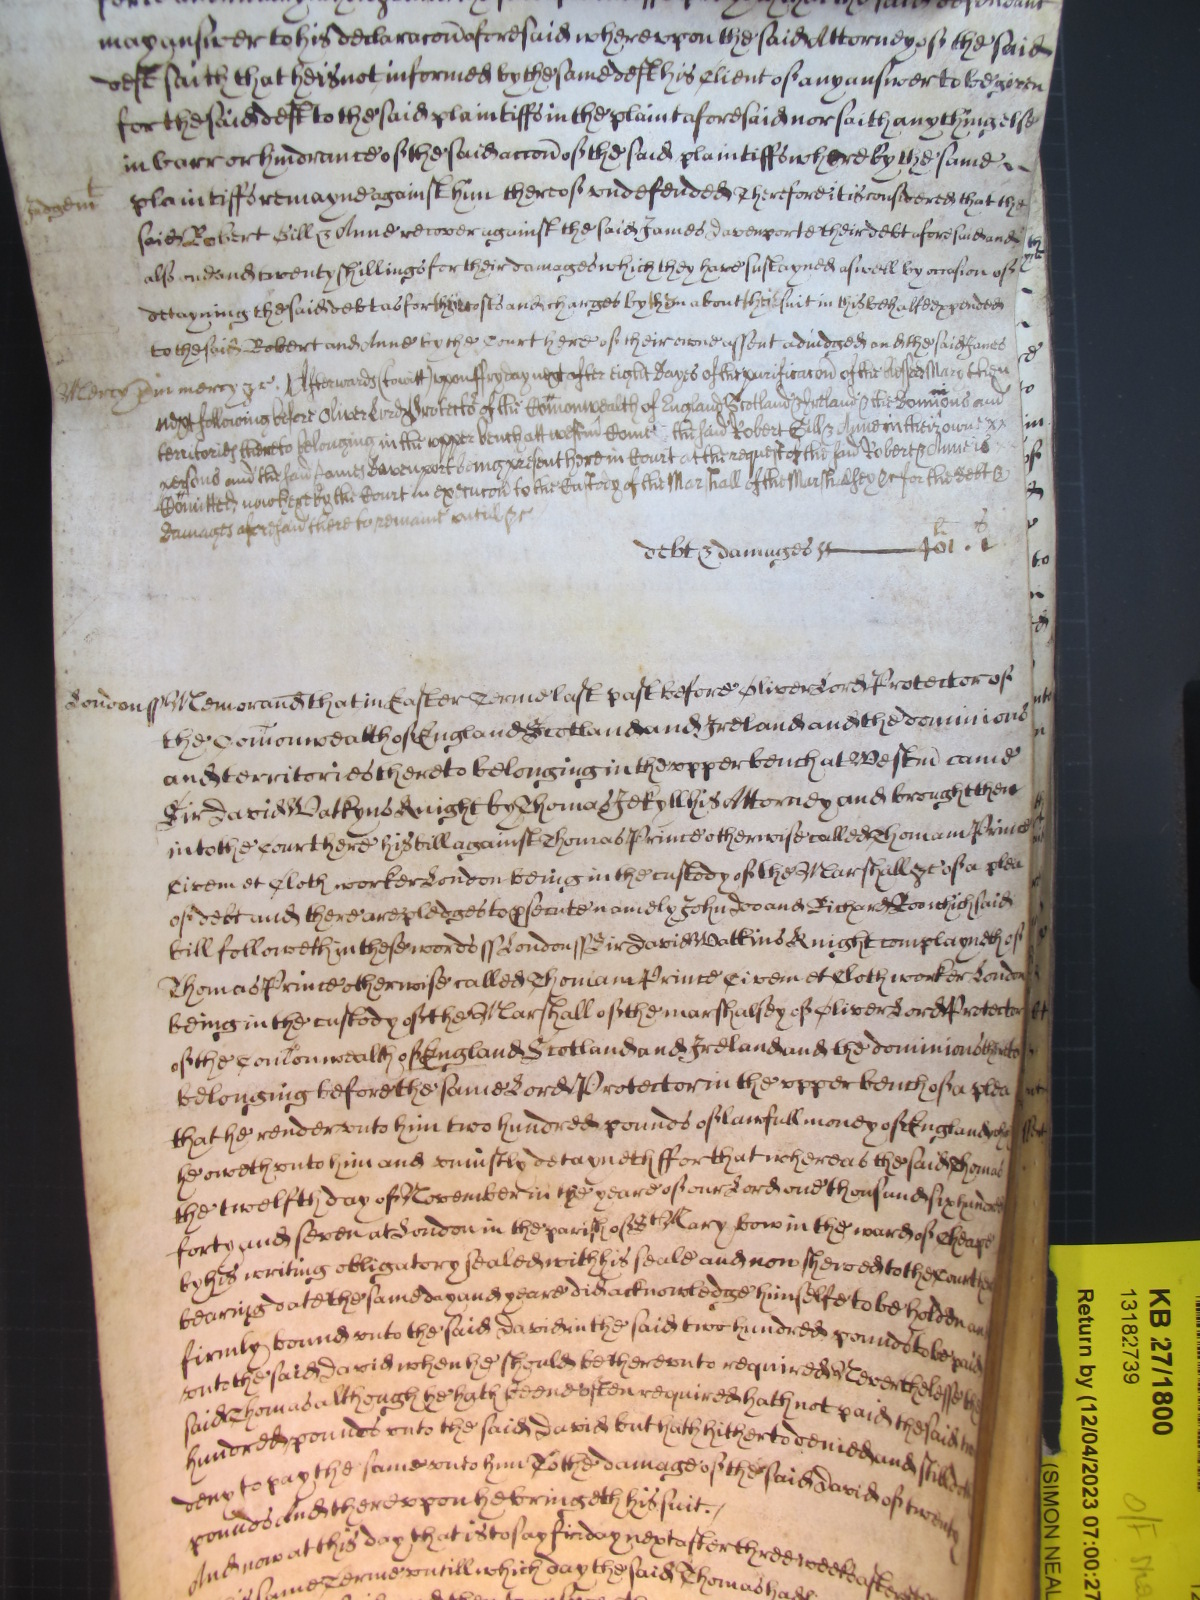 may answer to his declaracon aforesaid whereupon the said Attorney of the said
deft saith that he is not informed by the same deft his Client of any answer to be given
for the said deft to the said plaintiffs in the plaint aforesaid nor saith anything else
in barr or hindrance of the said accon of the said plaintiffs whereby the same
Judgemt
plaintiffs remayne against him thereof undefended Therefore it is considered that the
said Robert Gill & Anne recover against the said James Davenporte their debt aforesaid and
also one and twenty shillings for their damages which they have sustayned aswell by occasion of
detayning the said debt as for their costs and charges by them about their suit in this behalfe expended
to the said Robert and Anne by the Court here of their owne assent adiudged and the said James
Mercy
in mercy &c. Afterwards (to witt) upon ffryday next after eight dayes of the purificacon of the blessed Mary then
next following before Oliver Lord Protector of the Comonwealth of England Scotland & Ireland & the Dominions and
territories thereto belonging in the upper bench att Westmr come the said Robert Gill & Anne in their owne
persons and the said James Davenport being present here in Court at the request of the said Robert & Anne is
Comitted now here by the Court in execucon to the Custody of the Marshall of the Marshalsey &c for the debt &
damages aforesaid there to remaine untill &c
debt & damages ss 401 . 1
London ss Memorand that in Easter Terme last past before Oliver Lord Protector of
the Comonwealth of England Scotland and Ireland and the dominions
and territories thereto belonging in the upper bench at Westm came
Sir David Watkyns Knight by Thomas Jekyll his Attorney and brought then
into the Court here his bill against Thomas Prince otherwise called Thomam Prince
Civem et Cloth worker London being in the custody of the Marshall &c of a plea
of debt and there are pledges to psecute namely John Doo and Richard Roo which said
bill followeth in these words ss London ss Sir David Watkins Knight complayneth of
Thomas Prince otherwise called Thomam Prince Civem et Cloth worker London
being in the custody of the Marshall of the marshalsey of Oliver Lord Protector
of the Comonwealth of England Scotland and Ireland and the dominions thereto
belonging before the same Lord Protector in the upper bench of a plea
that he render unto him two hundred pounds of lawfull money of England which
he oweth unto him and uniustly detayneth ffor that whereas the said Thomas
the twelfth day of November in the yeare of our Lord one thousand six hundred
forty and seven at London in the parish of St Mary bow in the ward of Cheape
by his writing obligatory sealed with his seale and now shewed to the Court here
bearing date the same day and yeare did acknowledge himselfe to be holden and
firmly bound unto the said David in the said two hundred pounds to be paid
unto the said David when he should be thereunto required Neverthelesse the
said Thomas although he hath beene often required hath not paid the said two
hundred pounds unto the said David but hath hitherto denied and still doth
deny to pay the same unto him To the damage of the said David of twenty
pounds And thereupon he bringeth his suit./
And now at this day that is to say friday next after three weekes after
same Terme untill which day the said Thomas had
KB 27/1800
13182739
Return by (12/04/2023 07:00:27
(SIMON NEAL